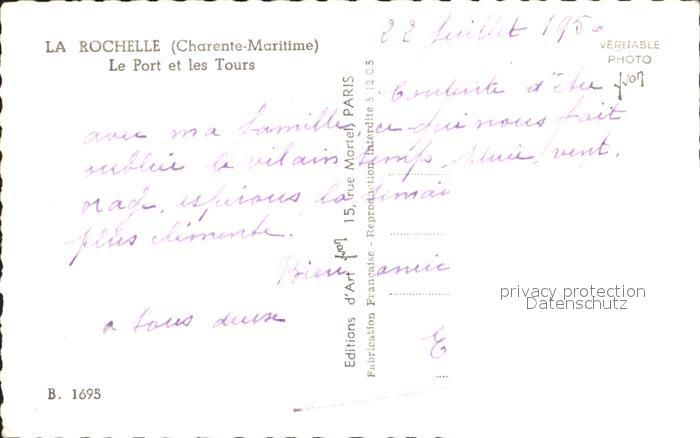 LA ROCHELLE (Charente-Maritime)
Le Port et les Tours
22 Juillet 1950
VÉRITABLE
PHOTO
Contente d'être
avec ma famille, ce qui nous fait
oublier le vilain temps, pluie, vent,
orage, espérons la semai
plus clémente.
Bien amic
a tous deux
E
Editions d'Art yvon 15, rue Martel, PARIS
Fabrication Française - Reproduction interdite 5.12.05
yvon
privacy protection
Datenschutz
B. 1695